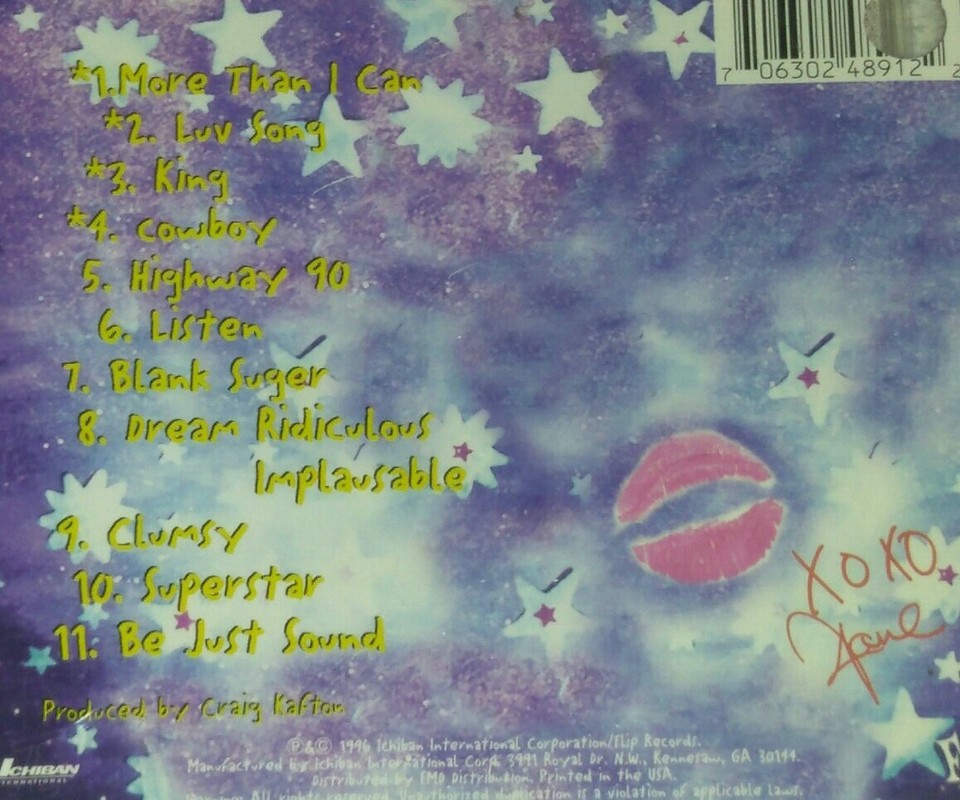 7 06302 48912 2
*1. More Than I Can
*2. Luv Song
*3. King
*4. Cowboy
5. Highway 90
6. Listen
7. Blank Suger
8. Dream Ridiculous
Implausable
9. Clumsy
10. Superstar
11. Be Just Sound
XOXO
Jane
Produced by Craig Kafton
℗&© 1996 Ichiban International Corporation/Flip Records.
Manufactured by Ichiban International Corp. 3991 Royal Dr. N.W., Kennesaw, GA 30144.
Distributed by EMD Distribution. Printed in the USA.
All rights reserved. Unauthorized duplication is a violation of applicable laws.
ICHIBAN
INTERNATIONAL
F